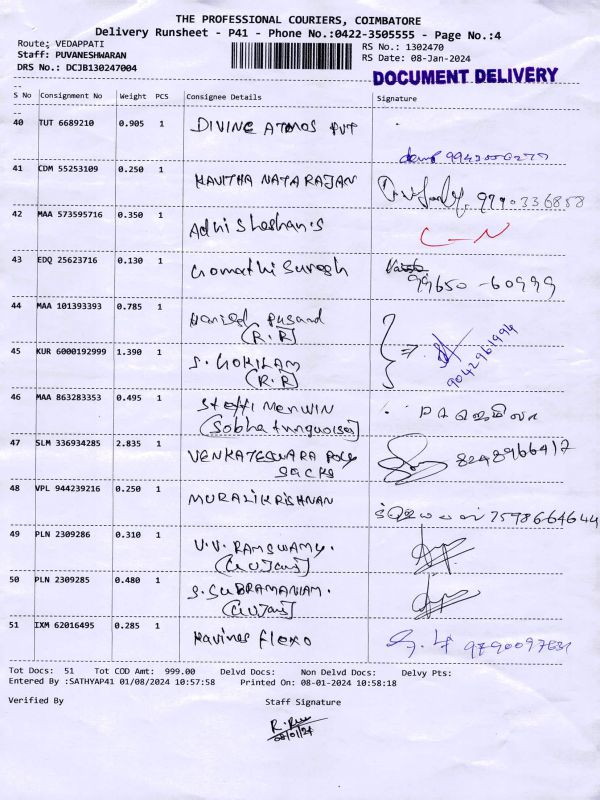 THE PROFESSIONAL COURIERS, COIMBATORE
Delivery Runsheet - P41 - Phone No.:0422-3505555 - Page No.:4
Route; VEDAPPATI RS No.: 1302470
Staff: PUVANESHWARAN RS Date: 08-Jan-2024
DRS No.: DCJB130247004
DOCUMENT DELIVERY
S No Consignment No Weight PCS Consignee Details Signature
40 TUT 6689210 0.905 1 DIVINE ATMOS PVT
41 CDM 55253109 0.250 1 KAVITHA NATARAJAN 9790336858
42 MAA 573595716 0.350 1 Adhi Sheshan's C-N
43 EDQ 25623716 0.130 1 Gomathi Suresh 99650-60999
44 MAA 101393393 0.785 1
(R.R)
9042961994
45 KUR 6000192999 1.390 1 S. GOKILAM
(R.R)
46 MAA 863283353 0.495 1 Steffi Merwin
(Sobha turquoise)
47 SLM 336934285 2.835 1 VENKATESWARA POLY SACKS 8248966417
48 VPL 944239216 0.250 1 MURALIKRISHNAN 7598664644
49 PLN 2309286 0.310 1 V.V. RAMSWAMY.
50 PLN 2309285 0.480 1 S. SUBRAMANIAM.
51 IXM 62016495 0.285 1 Kavines flexo
Tot Docs: 51 Tot COD Amt: 999.00 Delvd Docs: Non Delvd Docs: Delvy Pts:
Entered By :SATHYAP41 01/08/2024 10:57:58 Printed On: 08-01-2024 10:58:18
Verified By Staff Signature
08/01/24